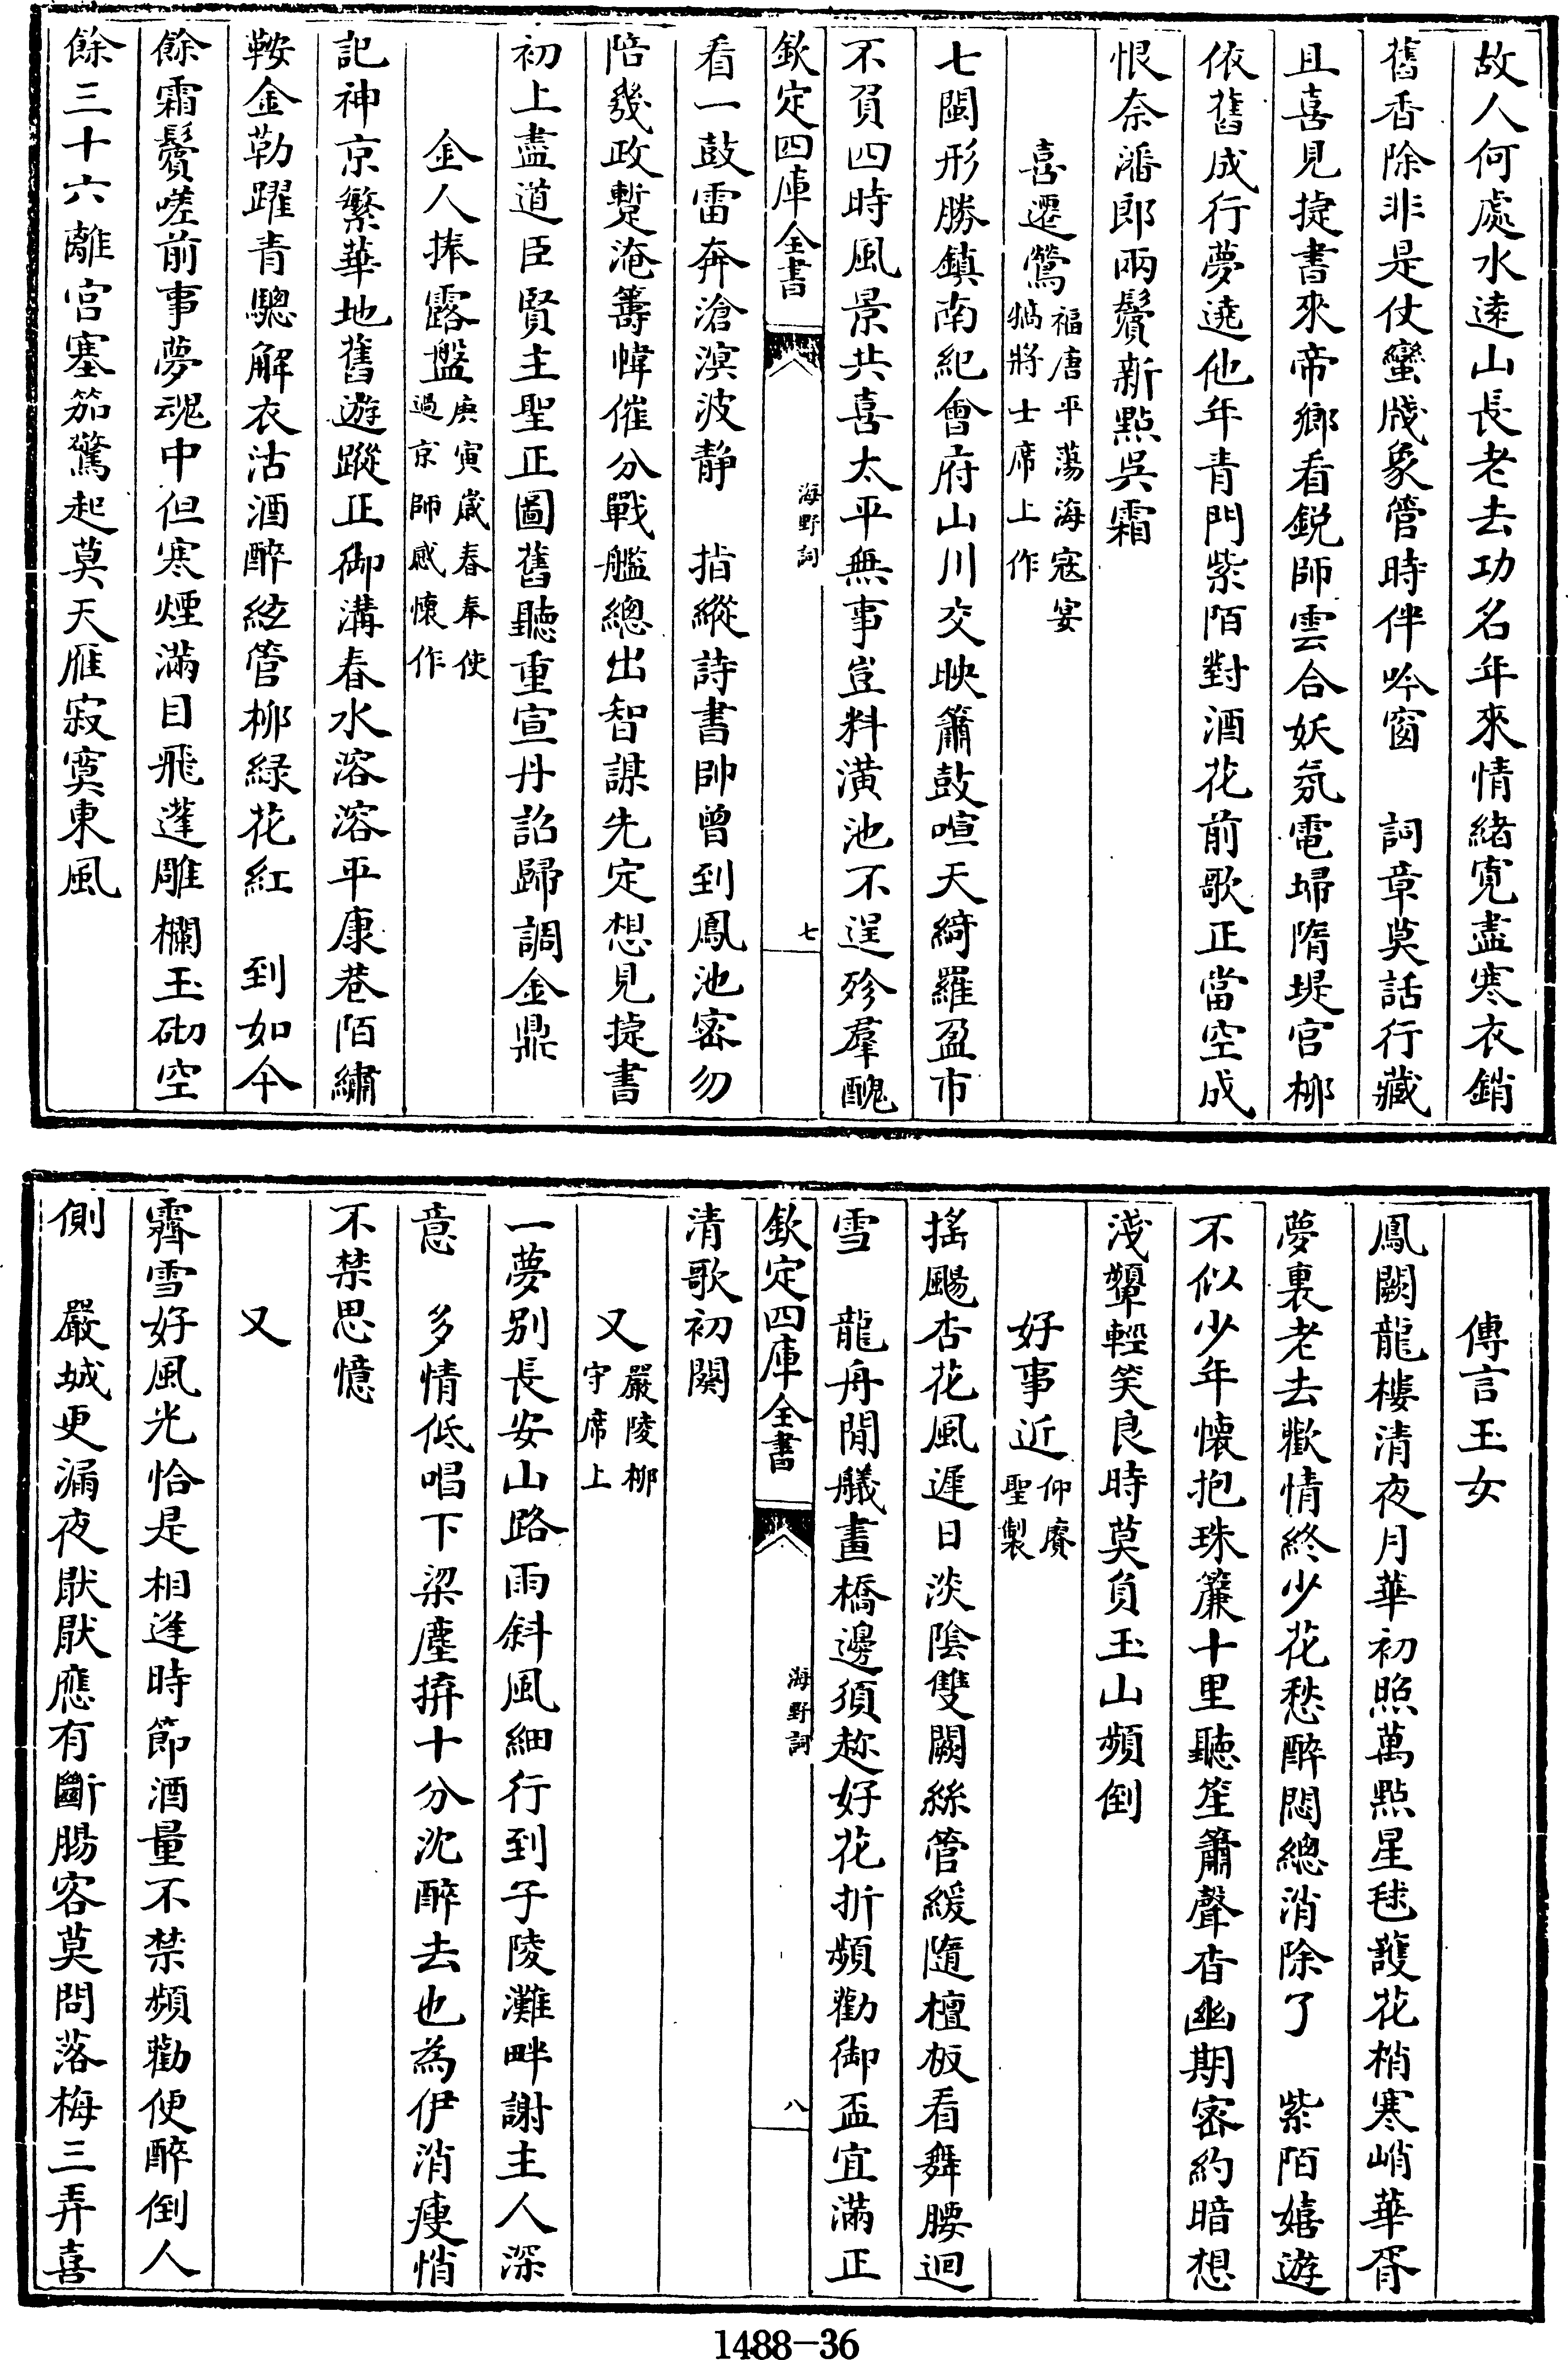 故人何處水遠山長老去功名年來情緒寛盡寒衣銷
舊香除非是仗蠻牋象管時伴吟窗　詞章莫話行藏
且喜見捷書來帝鄉看銳師雲合妖氛電埽隋堤官柳
依舊成行夢遶他年青門紫陌對酒花前歌正當空成
恨奈潘郎兩鬢新點吳霜
喜遷鶯福唐平蕩海寇宴
犒將士席上作
七閩形勝鎮南紀會府山川交映簫鼓喧天綺羅盈市
不負四時風景共喜太平無事豈料潢池不逞殄羣醜
欽定四庫全書
海野詞
七
看一鼓雷奔滄溟波靜　指縱詩書帥曾到鳳池密勿
陪幾政蹔淹籌幃催分戰艦總出智謀先定想見捷書
初上盡道臣賢主聖正圖舊聽重宣丹詔歸調金鼎
金人捧露盤庚寅歲春奉使
過京師感懷作
記神京繁華地舊遊蹤正御溝春水溶溶平康巷陌繡
鞍金勒躍青驄解衣沽酒醉絃管柳緑花紅　到如今
餘霜鬢嗟前事夢魂中但寒煙滿目飛蓬雕欄玉砌空
餘三十六離宮塞笳驚起莫天雁寂寞東風
傳言玉女
鳳闕龍樓清夜月華初照萬點星毬護花梢寒峭華胥
夢裏老去歡情終少花愁醉悶總消除了　紫陌嬉遊
不似少年懷抱珠簾十里聽笙簫聲杳幽期密約暗想
淺顰輕笑良時莫負玉山頻倒
好事近仰賡
聖製
搖颺杏花風遲日淡陰雙闕絲管緩隨檀板看舞腰迴
雪　龍舟閒艤畫橋邊須趂好花折頻勸御盃宜滿正
欽定四庫全書
海野詞
八
清歌初闋
又嚴陵柳
守席上
一夢别長安山路雨斜風細行到子陵灘畔謝主人深
意　多情低唱下梁塵拚十分沈醉去也為伊消瘦悄
不禁思憶
又
霽雪好風光恰是相逢時節酒量不禁頻勸便醉倒人
側　嚴城更漏夜厭厭應有斷腸客莫問落梅三弄喜
1488-36